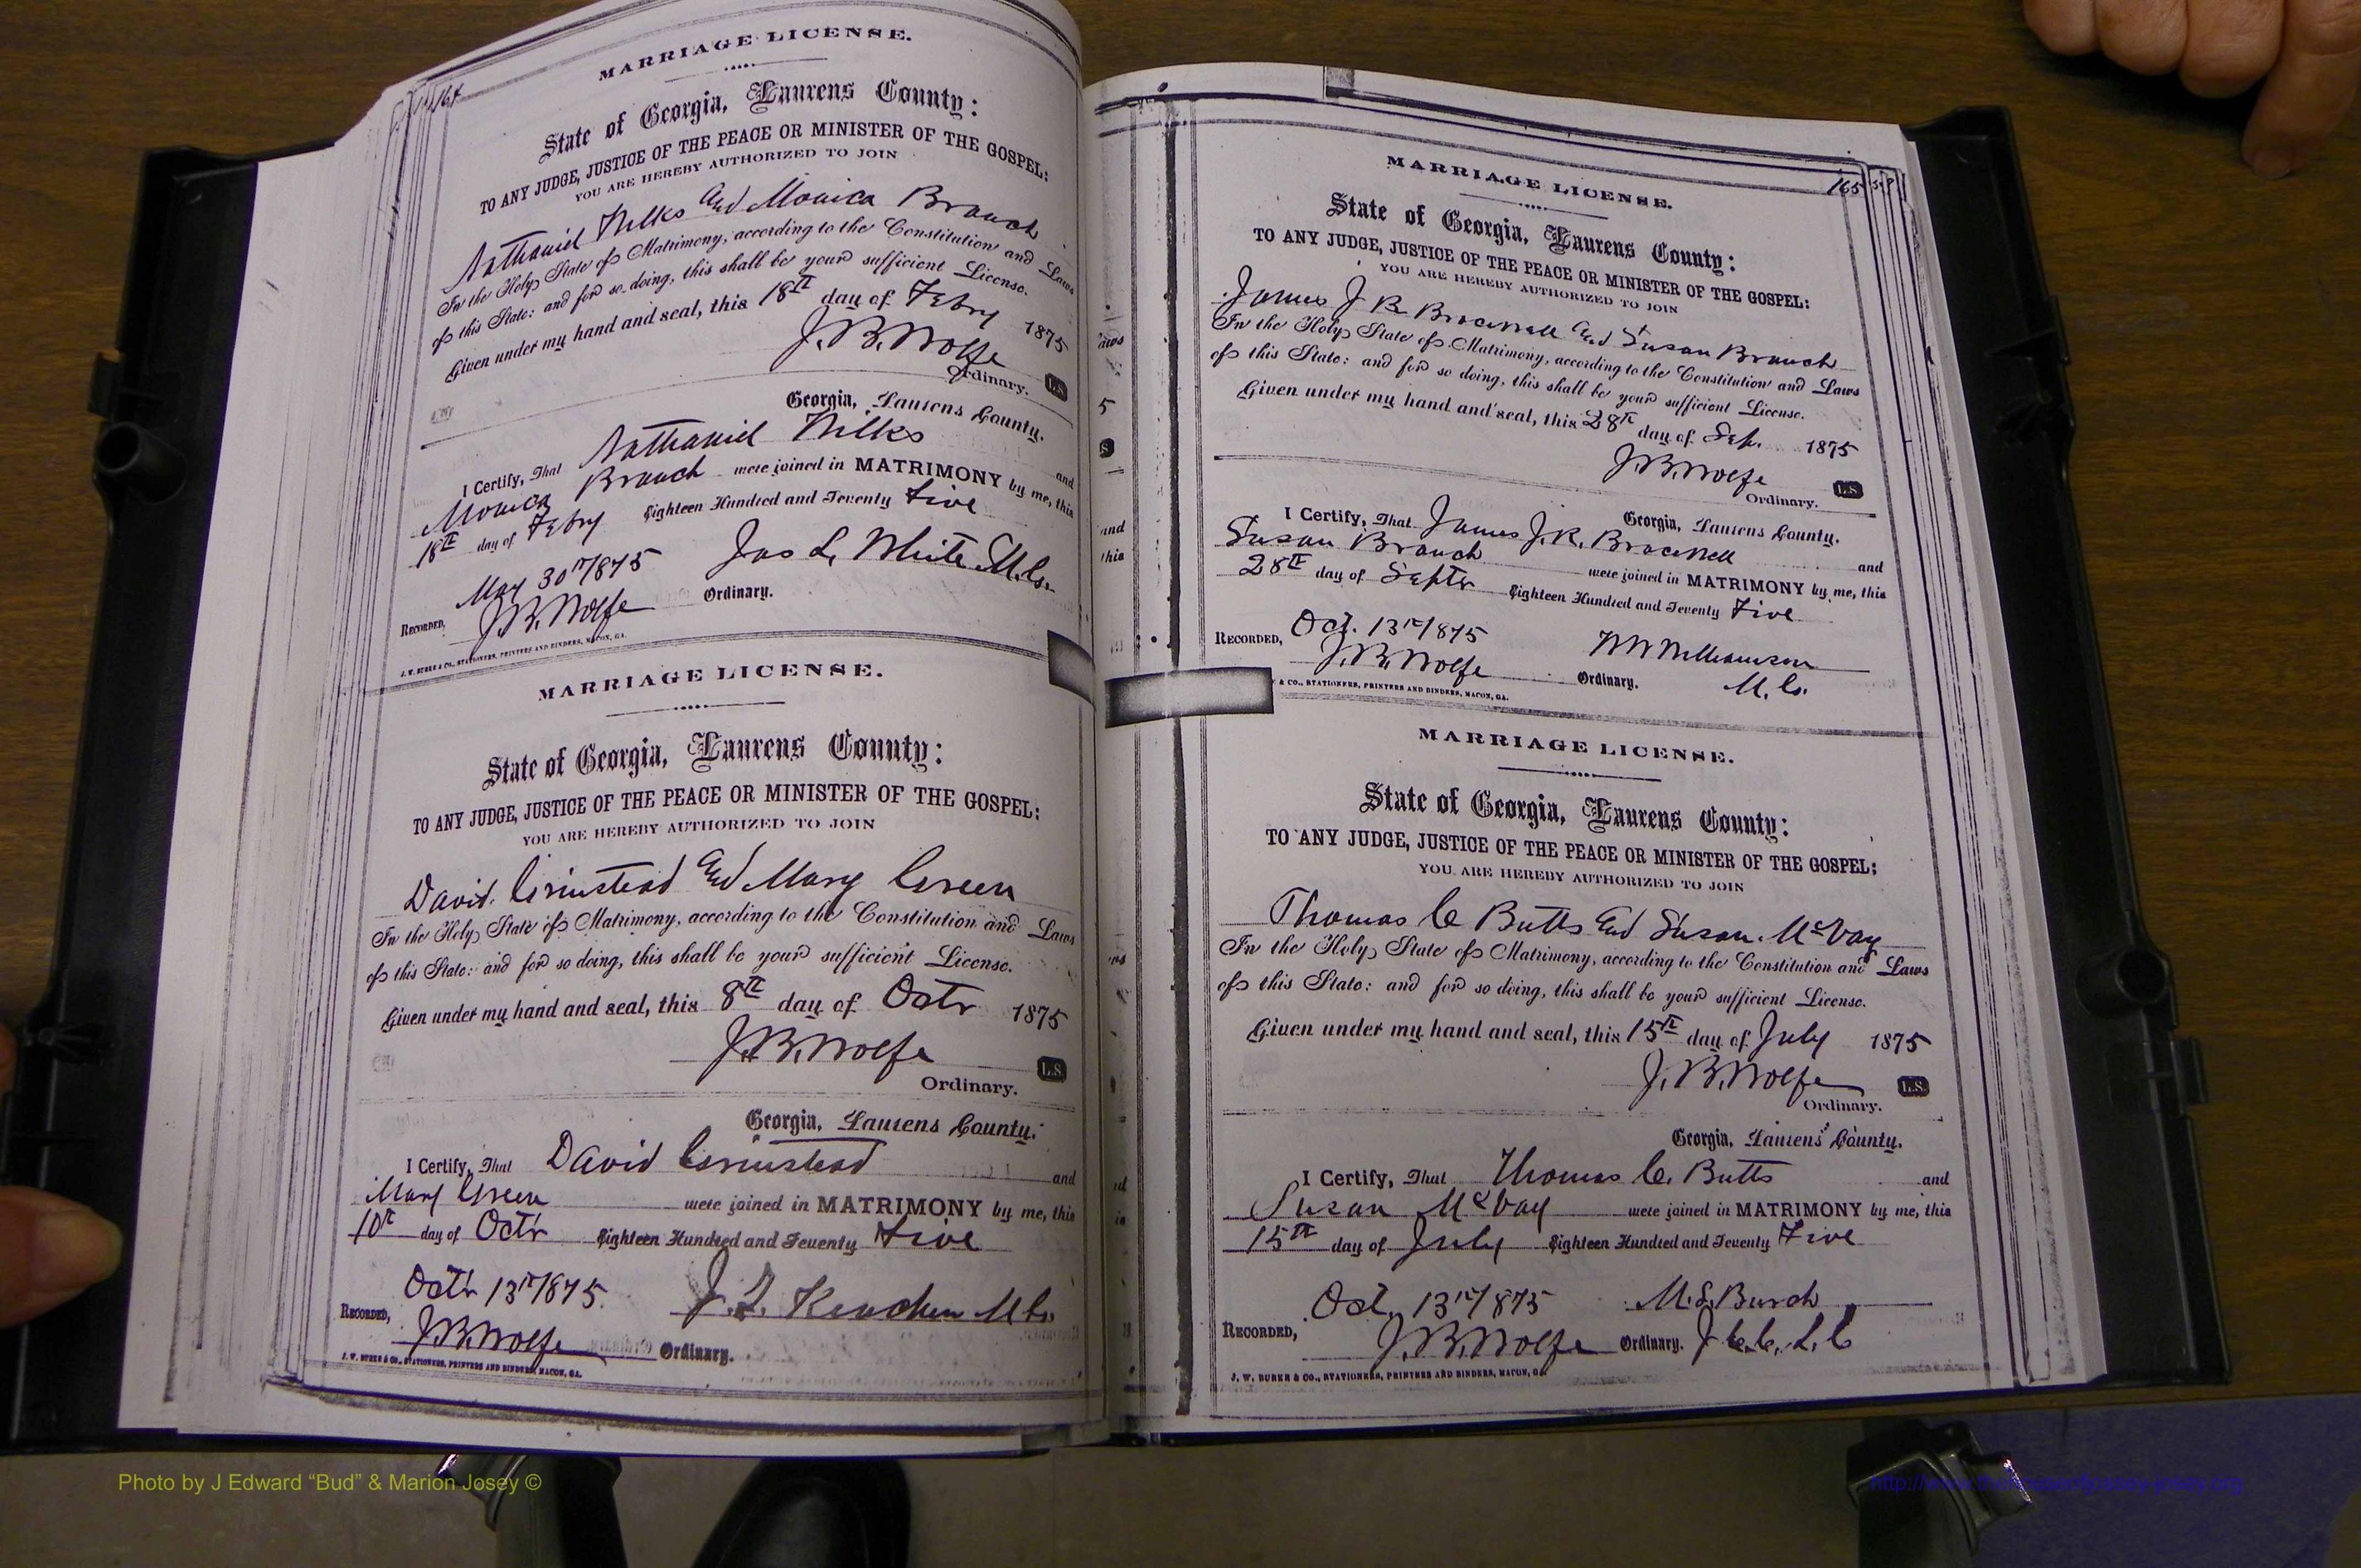 164
MARRIAGE LICENSE.
State of Georgia, Laurens County:
TO ANY JUDGE, JUSTICE OF THE PEACE OR MINISTER OF THE GOSPEL:
YOU ARE HEREBY AUTHORIZED TO JOIN
Nathaniel Wilks and Monica Branch
In the Holy State of Matrimony, according to the Constitution and Laws
of this State: and for so doing, this shall be your sufficient License.
Given under my hand and seal, this 18th day of Febry 1875
J.B. Wolfe
Ordinary. L.S.
Georgia, Laurens County.
I Certify, That Nathaniel Wilks and
Monica Branch were joined in MATRIMONY by me, this
18th day of Febry Eighteen Hundred and Seventy Five
May 30th 1875 Jas L. White M.G.
RECORDED,
J.B. Wolfe Ordinary.
J. W. BURKE & CO., STATIONERS, PRINTERS AND BINDERS, MACON, GA.
MARRIAGE LICENSE.
State of Georgia, Laurens County:
TO ANY JUDGE, JUSTICE OF THE PEACE OR MINISTER OF THE GOSPEL:
YOU ARE HEREBY AUTHORIZED TO JOIN
David Grinstead and Mary Green
In the Holy State of Matrimony, according to the Constitution and Laws
of this State: and for so doing, this shall be your sufficient License.
Given under my hand and seal, this 8th day of Octr 1875
J.B. Wolfe
L.S.
Ordinary.
Georgia, Laurens County.
I Certify, That David Grinstead and
Mary Green were joined in MATRIMONY by me, this
10th day of Octr Eighteen Hundred and Seventy Five
Octr 13th 1875. J. T. M.G.
RECORDED,
J.B. Wolfe Ordinary.
J. W. BURKE & CO., STATIONERS, PRINTERS AND BINDERS, MACON, GA.
165
MARRIAGE LICENSE.
State of Georgia, Laurens County:
TO ANY JUDGE, JUSTICE OF THE PEACE OR MINISTER OF THE GOSPEL:
YOU ARE HEREBY AUTHORIZED TO JOIN
James J R Bracewell and Susan Branch
In the Holy State of Matrimony, according to the Constitution and Laws
of this State: and for so doing, this shall be your sufficient License.
Given under my hand and seal, this 28th day of Sep. 1875
J.B. Wolfe
Ordinary. L.S.
Georgia, Laurens County.
I Certify, That James J.R. Bracewell and
Susan Branch were joined in MATRIMONY by me, this
28th day of Septr Eighteen Hundred and Seventy Five
RECORDED, Oct. 13th 1875 Williamson
J.B. Wolfe Ordinary. M.G.
& CO., STATIONERS, PRINTERS AND BINDERS, MACON, GA.
MARRIAGE LICENSE.
State of Georgia, Laurens County:
TO ANY JUDGE, JUSTICE OF THE PEACE OR MINISTER OF THE GOSPEL;
YOU ARE HEREBY AUTHORIZED TO JOIN
Thomas C Butts and Susan McVay
In the Holy State of Matrimony, according to the Constitution and Laws
of this State: and for so doing, this shall be your sufficient License.
Given under my hand and seal, this 15th day of July 1875
J.B. Wolfe L.S.
Ordinary.
Georgia, Laurens County.
I Certify, That Thomas C. Butts and
Susan McVay were joined in MATRIMONY by me, this
15th day of July Eighteen Hundred and Seventy Five
Oct. 13th 1875 M.L. Burch
RECORDED,
J.B. Wolfe Ordinary. J.C.C.L.C
J. W. BURKE & CO., STATIONERS, PRINTERS AND BINDERS, MACON, GA.
Photo by J Edward “Bud” & Marion Josey ©